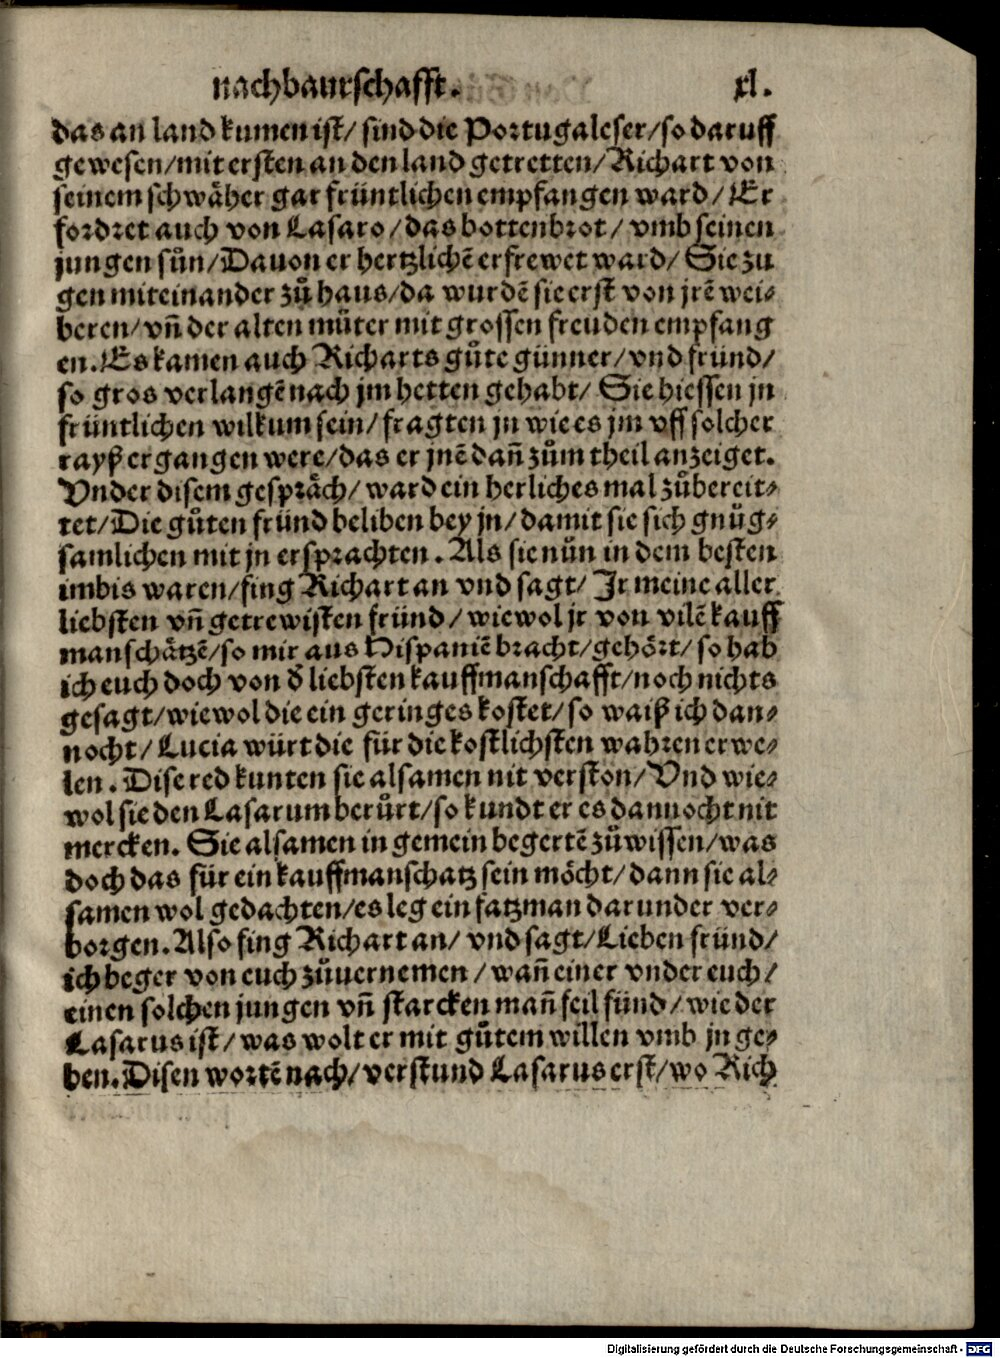 nachbaurschafft. xl.
das an land kumen ist/ sind die Portugaleser/ so daruff
gewesen/ mit ersten an den land getretten/ Richart von
seinem schwåher gar früntlichen empfangen ward/ Er
fordret auch von Lasaro/ das bottenbrot/ vmb seinen
jungen sůn/ Dauon er hertzlichē erfrewet ward/ Sie zu
gen miteinander zů haus/ da wurdē sie erst von jrē wei⸗
beren/ vn̄ der alten můter mit grossen freuden empfang
en. Es kamen auch Richarts gůte günner/ vnd fründ/
so gros verlangē nach jm hetten gehabt/ Sie hiessen jn
früntlichen wilkum sein/ fragten jn wie es jm vff solcher
rayß ergangen were/ das er jnē dan̄ zům theil anzeiget.
Vnder disem gespråch/ ward ein herliches mal zůbereit⸗
tet/ Die gůten fründ beliben bey jn/ damit sie sich gnůg⸗
samlichen mit jn ersprachten. Als sie nůn in dem besten
imbis waren/ fing Richart an vnd sagt/ Jr meine aller
liebsten vn̄ getrewisten fründ/ wiewol jr von vilē kauff
manschåtzē/ so mir aus Hispaniē bracht/ gehört/ so hab
ich euch doch von d̕ liebsten kauffmanschafft/ noch nichts
gesagt/ wiewol die ein geringes kostet/ so waiß ich dan⸗
nocht/ Lucia würt die für die kostlichsten wahren erwe⸗
len. Dise red kunten sie alsamen nit verston/ Vnd wie⸗
wol sie den Lasarum berůrt/ so kundt er es dannocht nit
mercken. Sie alsamen in gemein begertē zů wissen/ was
doch das für ein kauffmanschatz sein möcht/ dann sie al⸗
samen wol gedachten/ es leg ein fatzman darunder ver⸗
borgen. Also fing Richart an/ vnd sagt/ Lieben fründ/
ich beger von euch zůuernemen/ wan̄ einer vnder euch/
einen solchen jungen vn̄ starcken man̄ feil fünd/ wie der
Lasarus ist/ was wolt er mit gůtem willen vmb jn ge⸗
ben. Disen wortē nach/ verstund Lasarus erst/ wo Rich
Digitalisierung gefördert durch die Deutsche Forschungsgemeinschaft - DFG